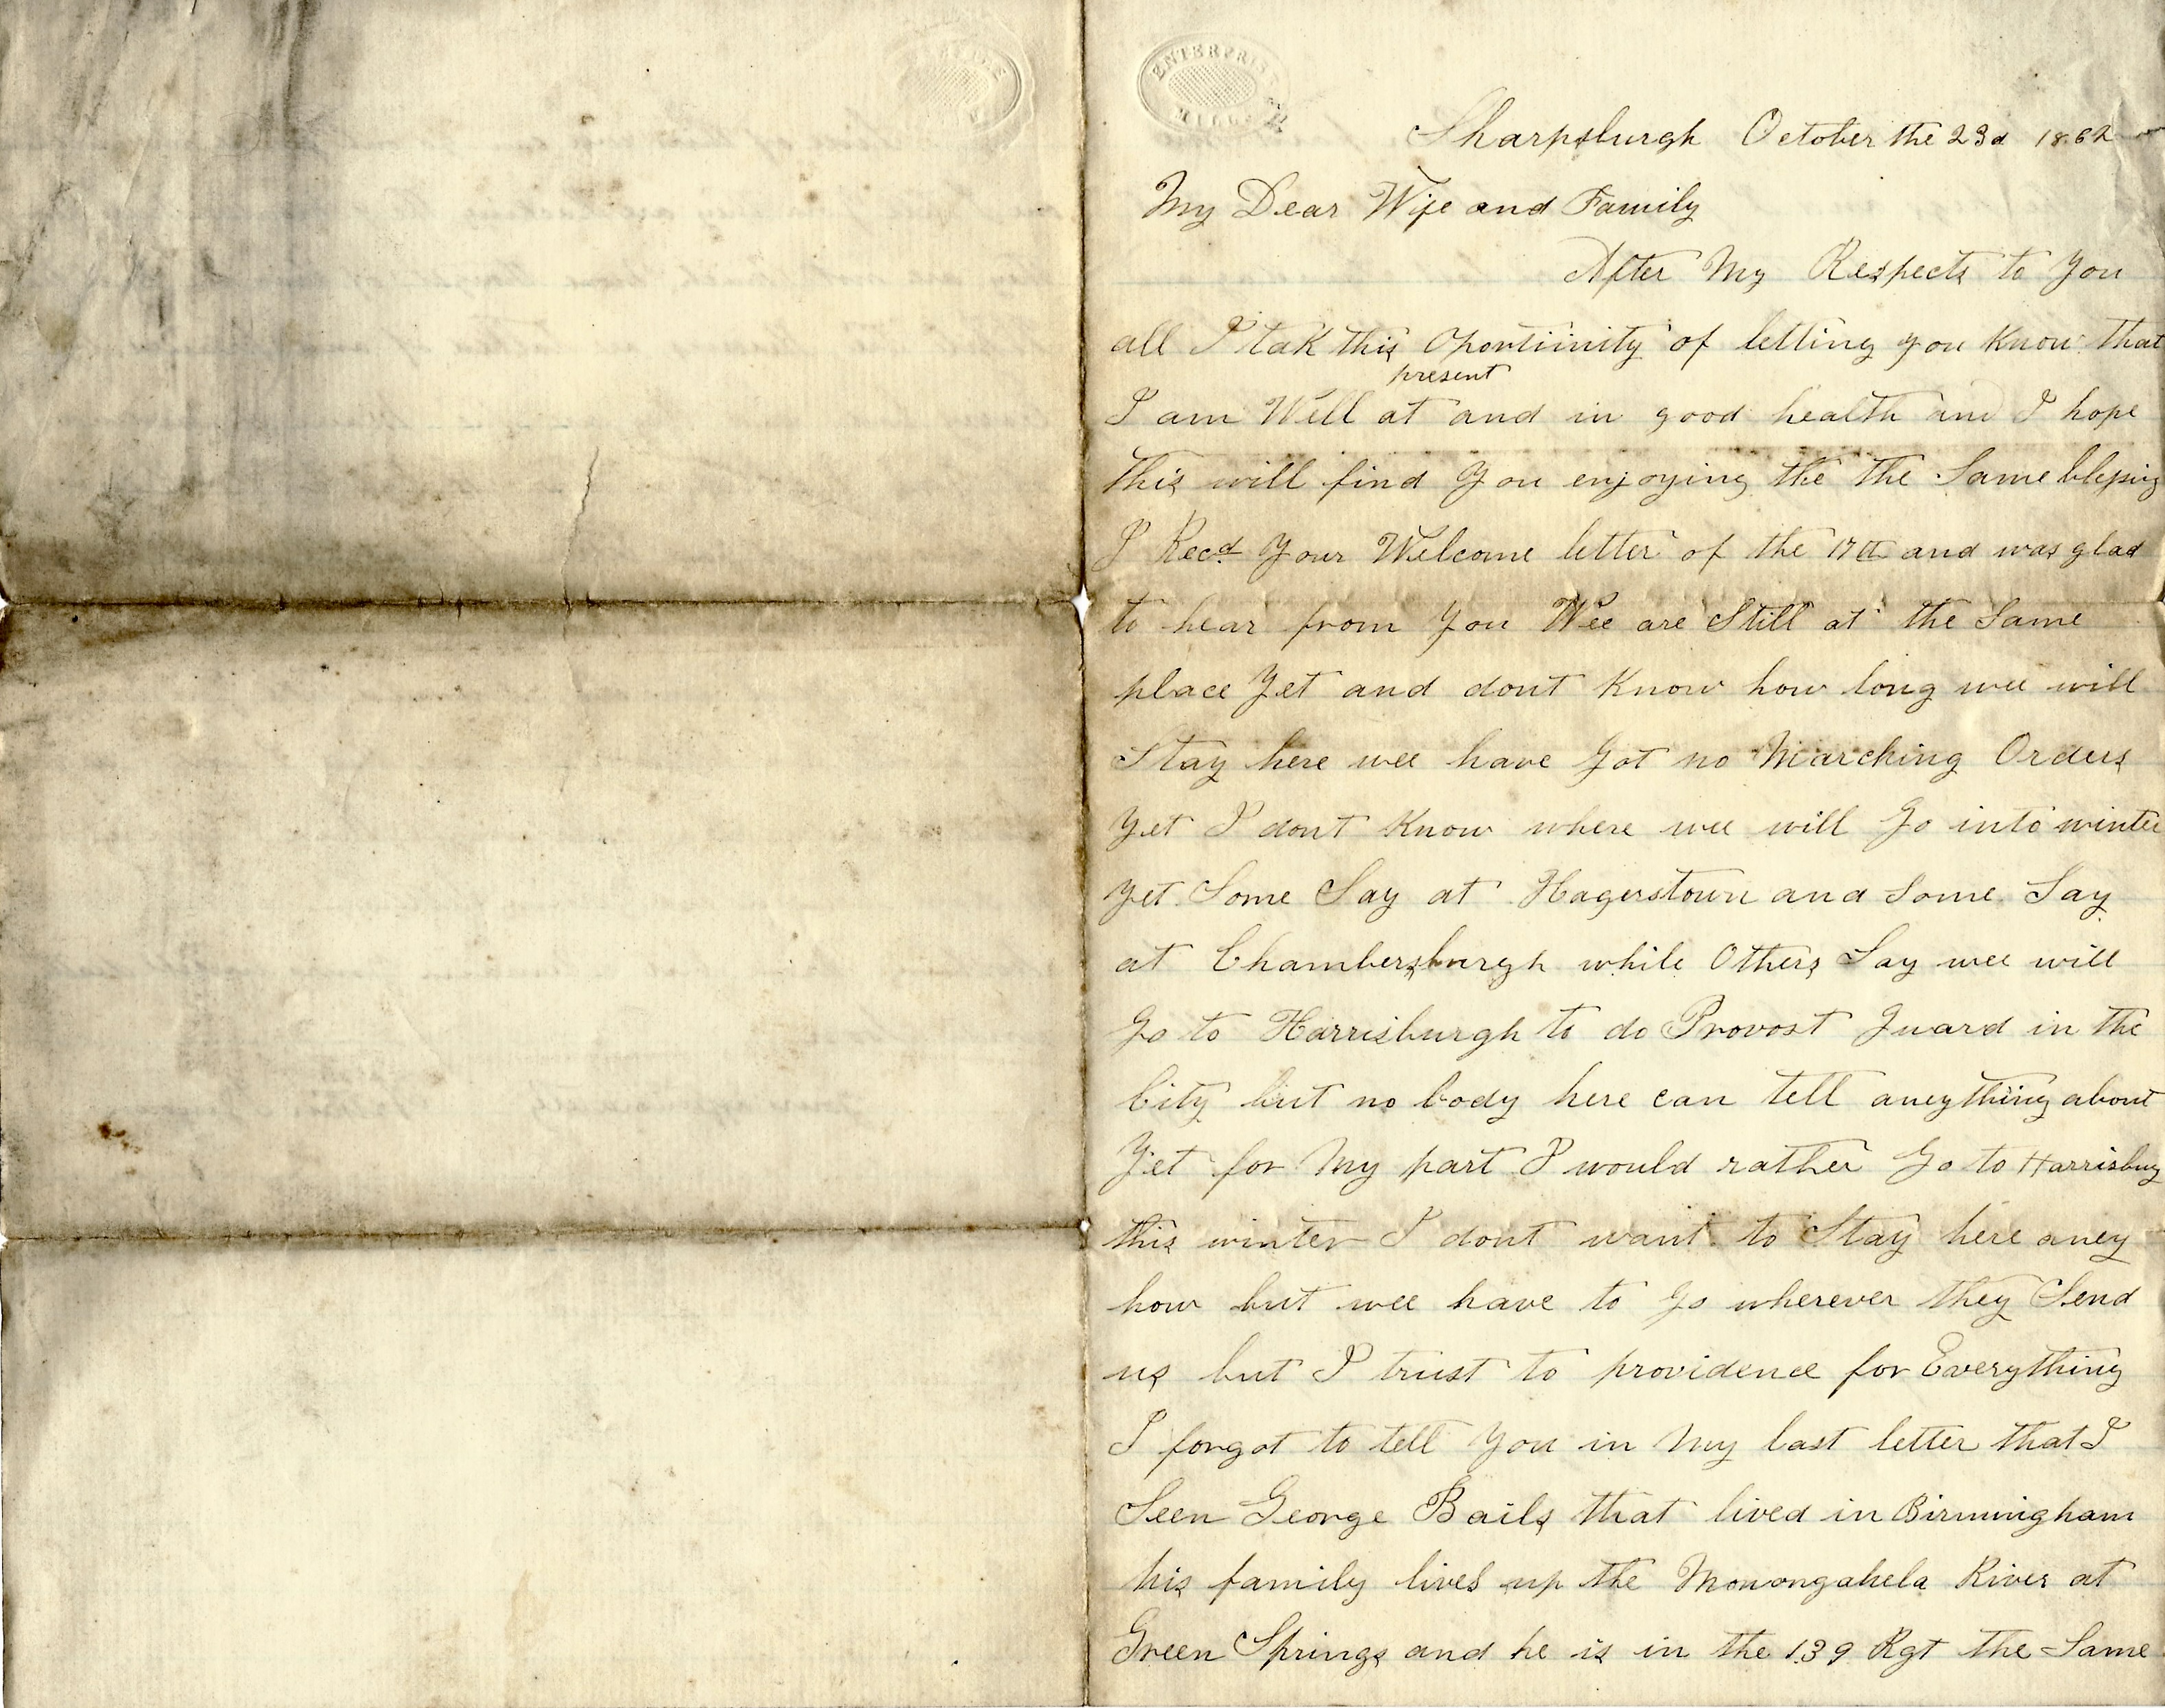 ENTERPRISE
MILLS
Sharpsburgh October the 23d 1862
My Dear Wife and Family
After My Respects to You
all I tak this Oportiinity of letting you Know that
present
I am Well at and in good health and I hope
this will find You enjoying the the Same blessing
I Recd Your Welcome letter of the 17th and was glad
to hear from You Wee are Still at the Same
place Yet and dont Know how long wee will
Stay here wee have Got no Marching Orders
Yet I dont Know where wee will Go into winter
Yet Some Say at Hagerstown and Some Say
at Chambersburgh while Others Say wee will
Go to Harrisburgh to do Provost Guard in the
City but no body here can tell aneything about
Yet for My part I would rather Go to Harrisburg
this winter I dont want to Stay here aney
how but wee have to Go wherever they Send
us but I trust to providence for Everything
I forgot to tell You in My last letter that I
Seen George Bails that lived in Birmingham
his family lives up the Monongahela River at
Green Springs and he is in the 139 Rgt the Same